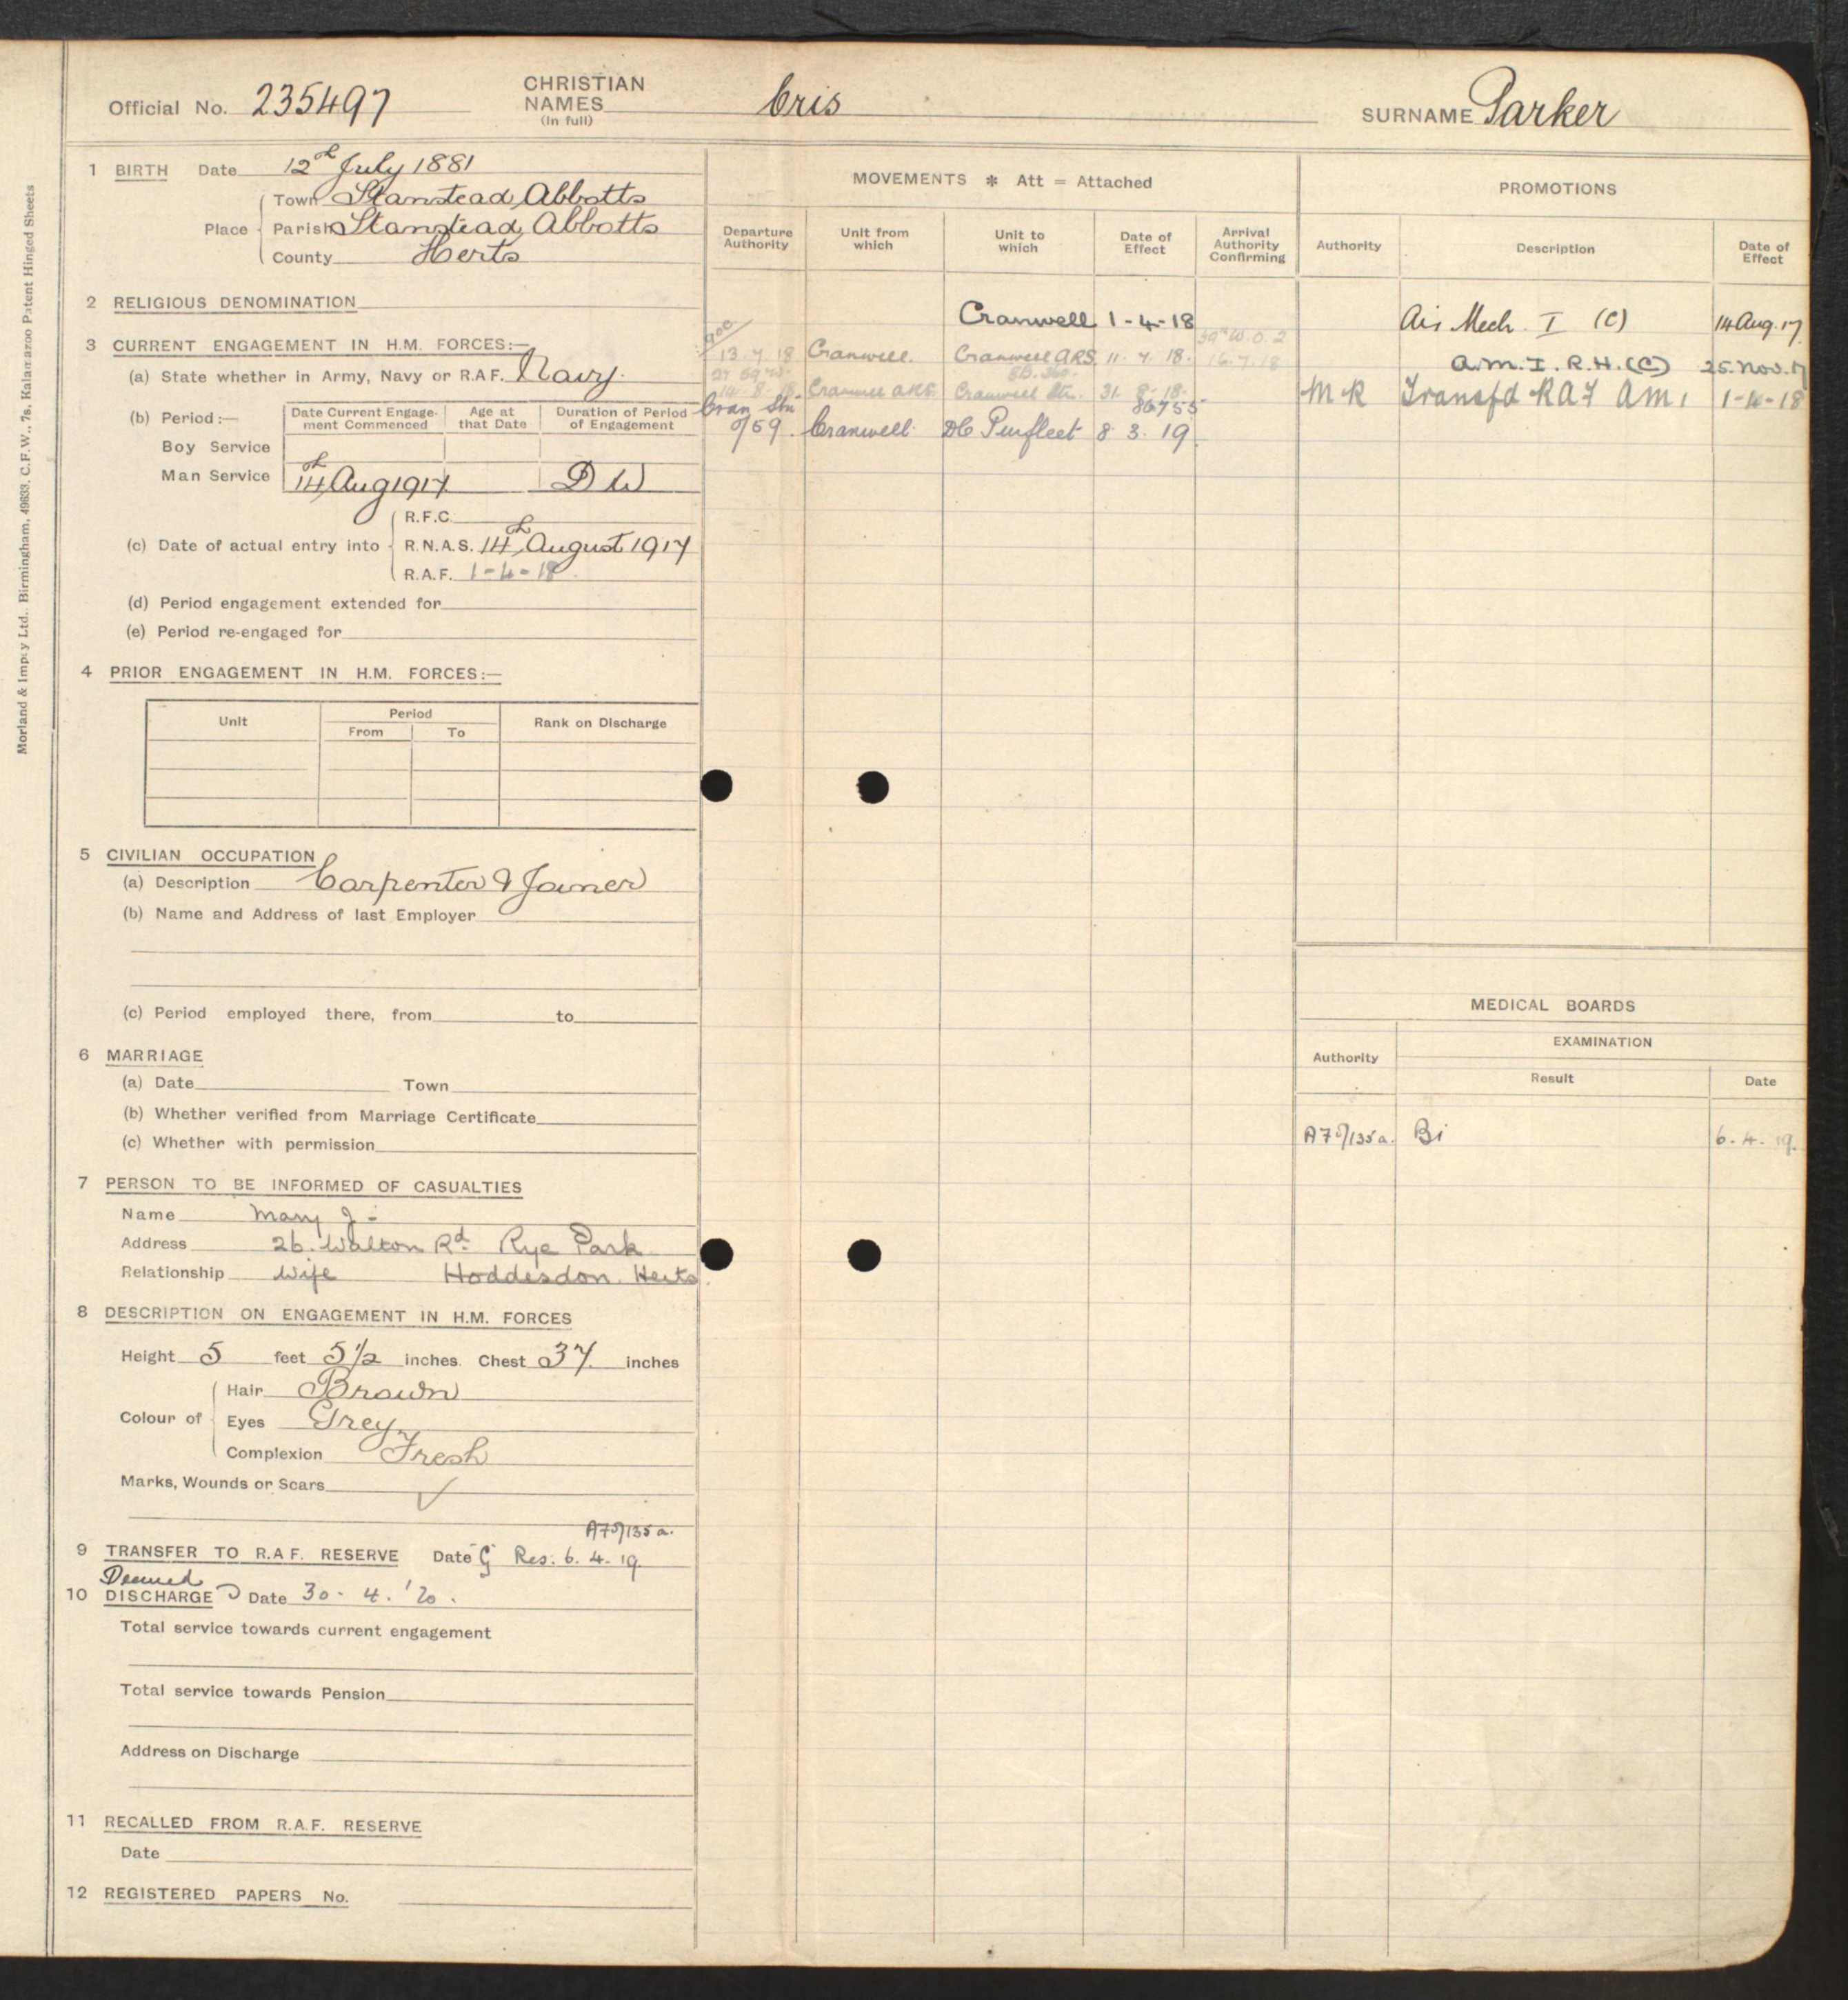 Official No. 235497
CHRISTIAN NAMES (In full) Cris
SURNAME Parker
1 BIRTH Date 12th July 1881
Place Town Stanstead Abbotts
Parish Stanstead Abbotts
County Herts
2 RELIGIOUS DENOMINATION
3 CURRENT ENGAGEMENT IN H.M. FORCES:—
(a) State whether in Army, Navy or R.A.F. Navy.
(b) Period:— Date Current Engagement Commenced Age at that Date Duration of Period of Engagement
Boy Service
Man Service 14th Aug 1917 D W
(c) Date of actual entry into R.F.C.
R.N.A.S. 14th August 1917
R.A.F. 1-4-18
(d) Period engagement extended for
(e) Period re-engaged for
4 PRIOR ENGAGEMENT IN H.M. FORCES:—
Unit Period Rank on Discharge
From To
5 CIVILIAN OCCUPATION
(a) Description Carpenter & Joiner
(b) Name and Address of last Employer
(c) Period employed there, from to
6 MARRIAGE
(a) Date Town
(b) Whether verified from Marriage Certificate
(c) Whether with permission
7 PERSON TO BE INFORMED OF CASUALTIES
Name Mary J -
Address 26. Walton Rd. Rye Park
Relationship Wife Hoddesdon. Herts.
8 DESCRIPTION ON ENGAGEMENT IN H.M. FORCES
Height 5 feet 5½ inches. Chest 37. inches
Colour of Hair Brown
Eyes Grey
Complexion Fresh
Marks, Wounds or Scars ✓
A75/135a.
9 TRANSFER TO R.A.F. RESERVE Date G Res: 6. 4. 19.
Deemed
10 DISCHARGED Date 30. 4. '20.
Total service towards current engagement
Total service towards Pension
Address on Discharge
11 RECALLED FROM R.A.F. RESERVE
Date
12 REGISTERED PAPERS No.
MOVEMENTS * Att = Attached
Departure Authority Unit from which Unit to which Date of Effect Arrival Authority Confirming
Cranwell 1-4-18
13.7.18 Cranwell. Cranwell ARS. 11. 7. 18. 16.7.18
14.8.18 Cranwell ARS. Cranwell Stn. 31. 8. 18.
86755
Cran Stn /59. Cranwell. DC Purfleet 8. 3. 19.
PROMOTIONS
Authority Description Date of Effect
Air Mech. I (C) 14 Aug. 17
A.M. I. R.H. (C) 25. Nov. 17
MR Transfd RAF AM 1 1-4-18
MEDICAL BOARDS
Authority EXAMINATION
Result Date
A75/135a. Bi 6. 4. 19.
Morland & Impey Ltd. Birmingham. 49633. C.F.W., 7s. Kalamazoo Patent Hinged Sheets